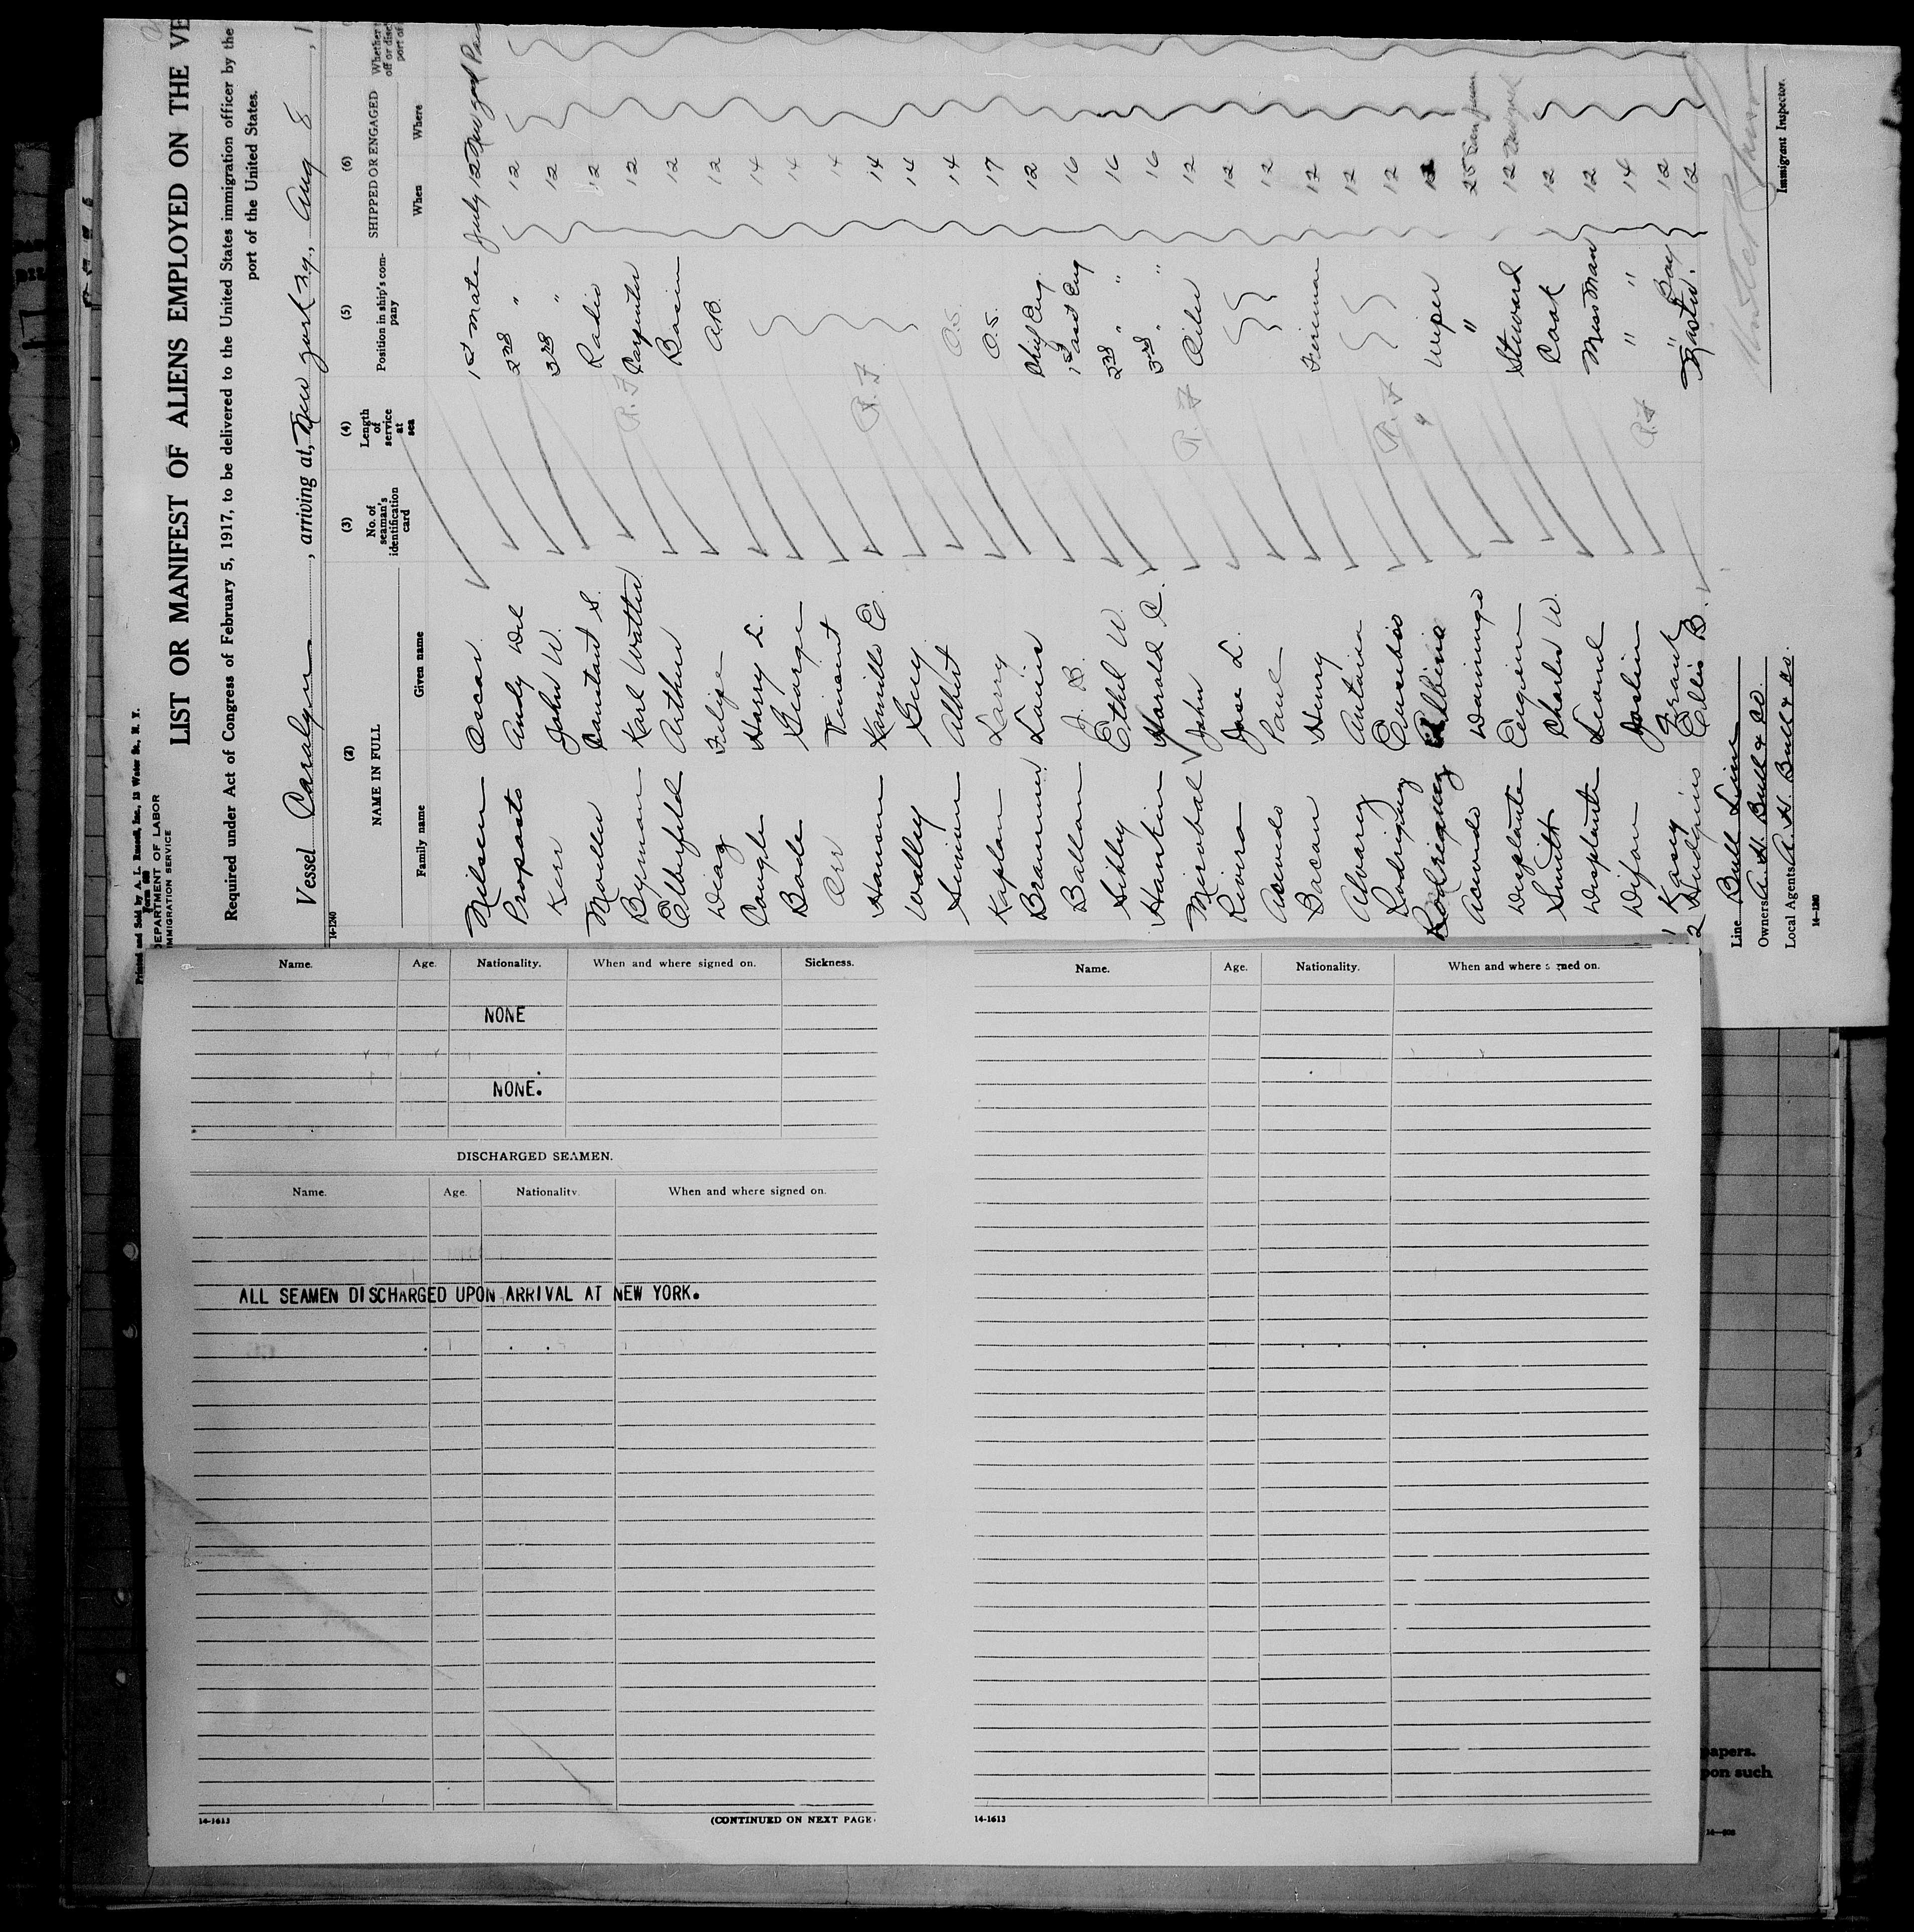 Printed and Sold by A. L. Russell, Inc., 13 Water St., N. Y.
Form 689
DEPARTMENT OF LABOR
IMMIGRATION SERVICE
LIST OR MANIFEST OF ALIENS EMPLOYED ON THE VE
Required under Act of Congress of February 5, 1917, to be delivered to the United States immigration officer by the
port of the United States.
Vessel Carolyn, arriving at, New York N.Y., Aug 8, 1
14-1240
(2) (3) (4) (5) (6)
NAME IN FULL No. of seaman's identification card Length of service at sea Position in ship's company SHIPPED OR ENGAGED Whether
Family name Given name When Where
Nelsen Oscar 1st Mate July 12 New York
Proposto Andy Del 2nd " 12
Kerr John W. 3rd " 12
Moulle Constant S. Radio 12
Byman Karl Walter R.F Carpenter 12
Elberfeld Arthur Bosun 12
Diaz Felipe A.B. 12
Cough Harry L. 14
Bode George 14
Orr Vincent 14
Hanson Kamillo E R.F 14
Walley Guy 14
Simon Albert O.S. 14
Kaplan Larry O.S. 17
Brannen Louis Chief Eng. 12
Ballan J. B. 1st Asst Eng 16
Sibly Ethel W. 2nd " " 16
Hankin Harold C. 3rd " " 16
Mirabal John R.F Oiler 12
Rivera Jose L. 12
Acevedo Paul 12
Bacan Henry Fireman 12
Alvarez Antonio 12
Rodriguez Eusebio R.F 12
Rodriguez Albino " Wiper 12
Acevedo Domingo " 25 San Juan
Desplante Steward 12 New York
Smith Charles W. Cook 12
Desplante Leonel Mess Man 12
Difon Joslin R.F " " 14
Kasey Frank " Boy 12
Hudgins Ellis B. Master. 12
Line Bull Line
Owners A. H. Bull & Co.
Local Agents A. H. Bull & Co.
Immigrant Inspector.
14-1240
Name. Age. Nationality. When and where signed on. Sickness.
NONE
NONE.
DISCHARGED SEAMEN.
Name. Age. Nationality. When and where signed on.
ALL SEAMEN DISCHARGED UPON ARRIVAL AT NEW YORK.
14-1613
(CONTINUED ON NEXT PAGE
Name. Age. Nationality. When and where signed on.
14-1613
papers.
pon such